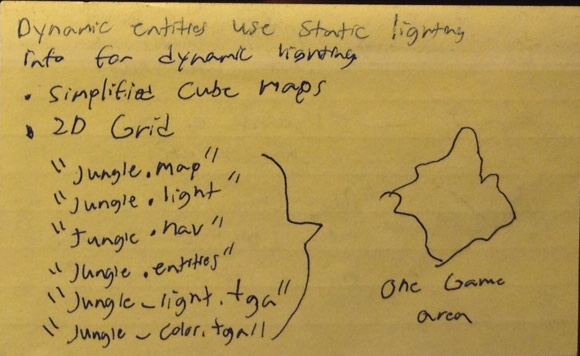 Dynamic entities use static lighting
info for dynamic lighting
• Simplified Cube maps
• 2D Grid
"Jungle.map"
"Jungle.light"
"Jungle.nav"
"Jungle.entities"
"Jungle_light.tga"
"Jungle_color.tga"
One Game
area